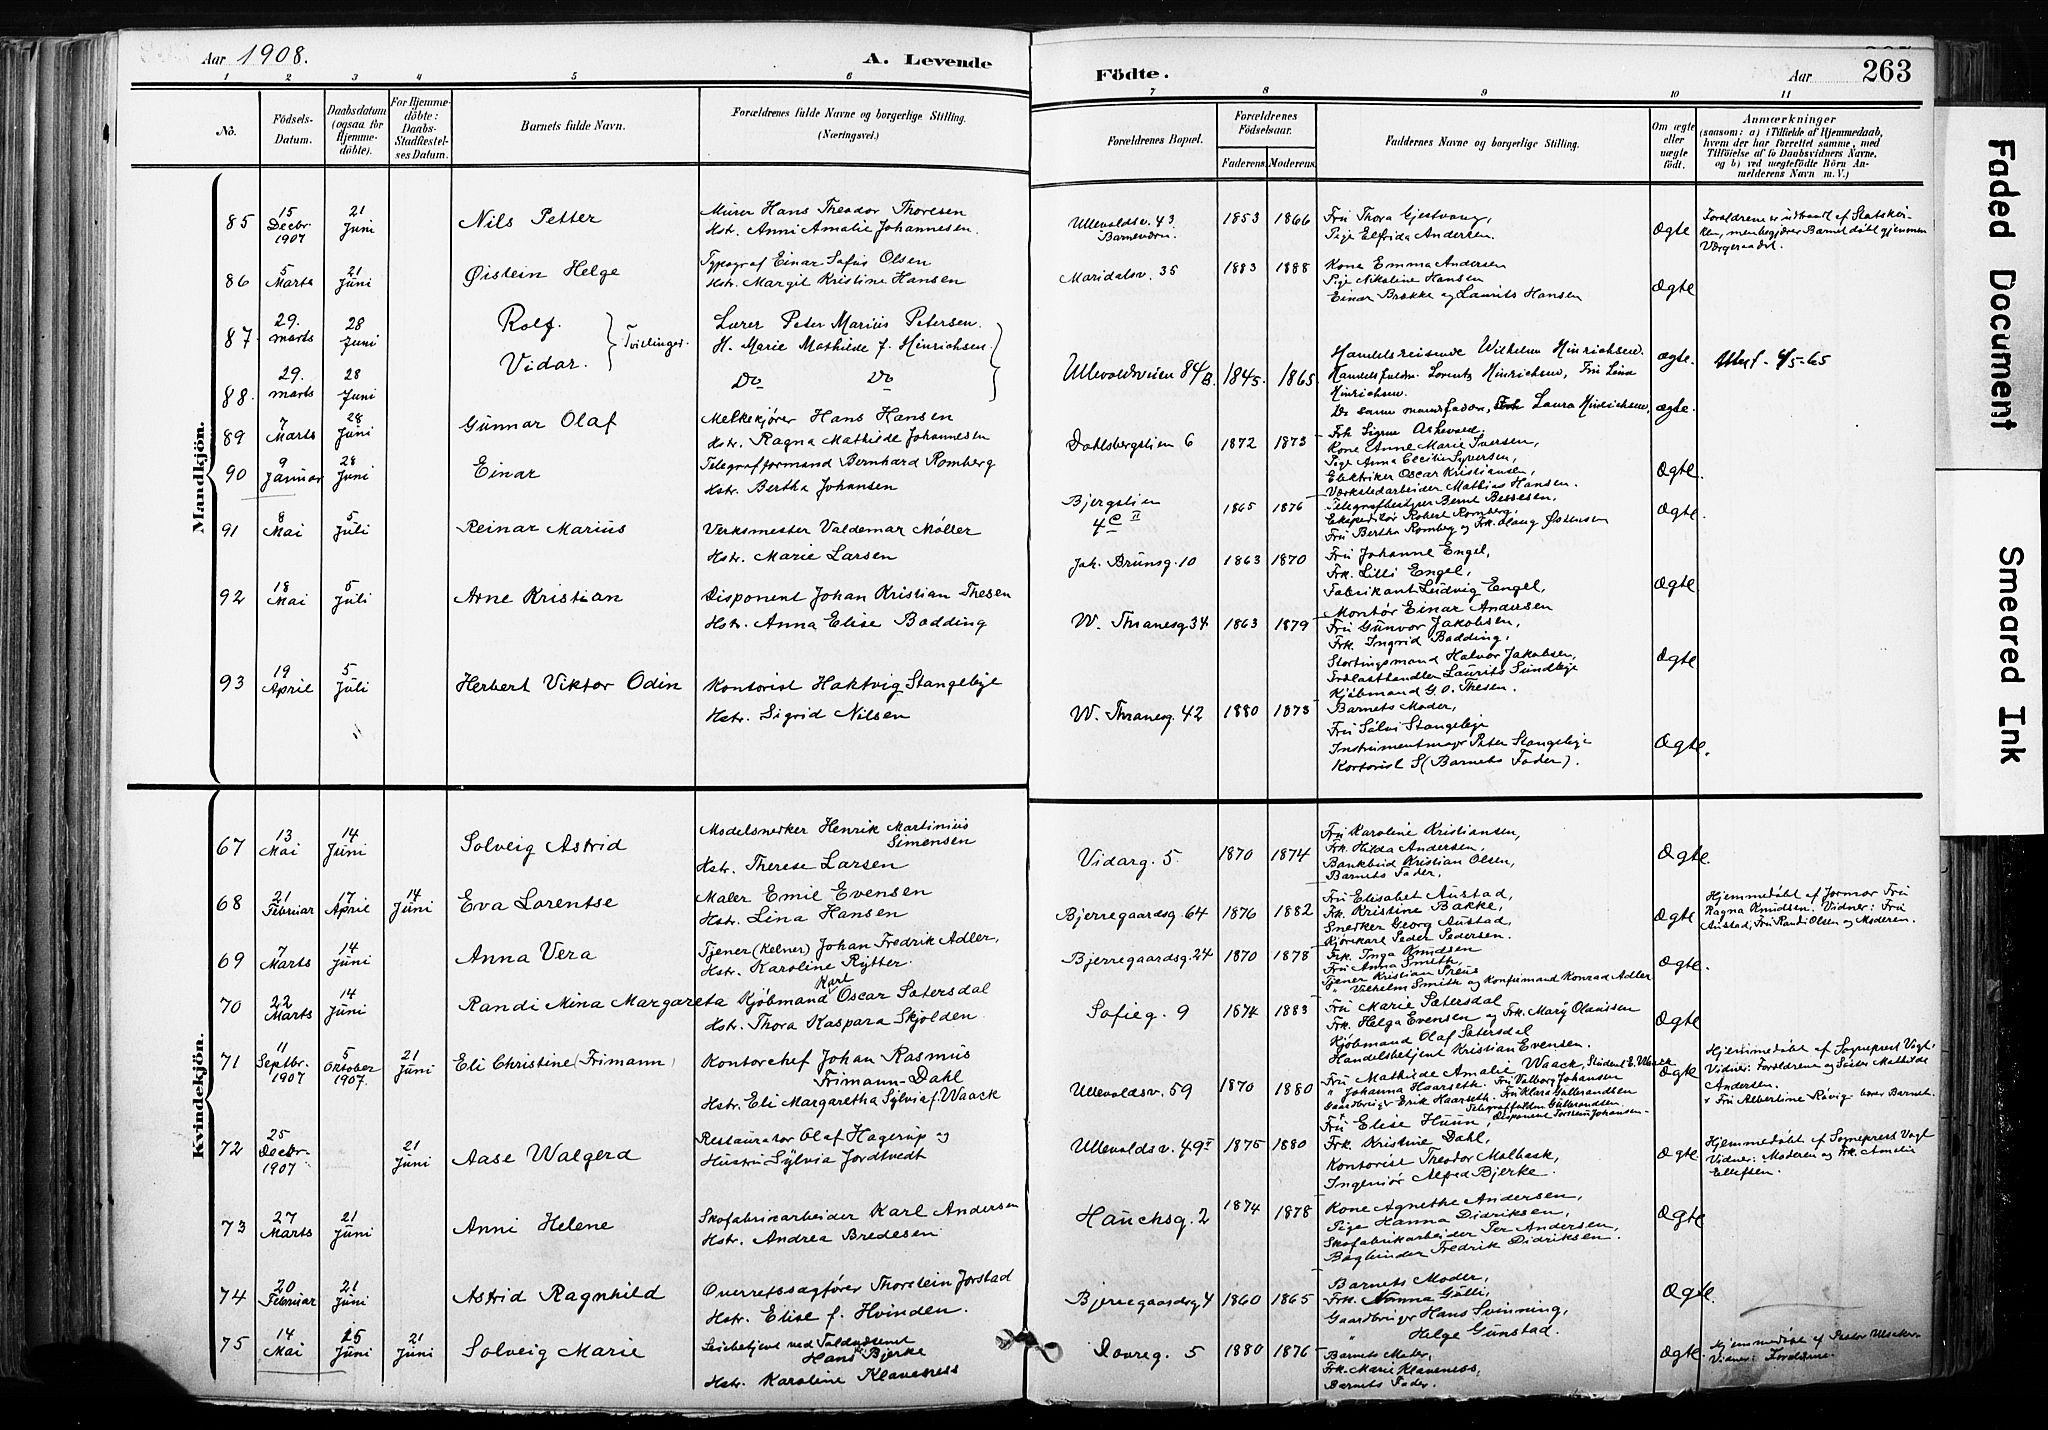 Aar 1908.
A. Levende
Födte.
Aar
263
1 2 3 4 5 6 7 8 9 10 11
No.
Födsels-Datum.
Daabsdatum (ogsaa for Hjemme-döbte).
For Hjemme-döbte: Daabs-Stadfæstel-ses Datum.
Barnets fulde Navn.
Forældrenes fulde Navne og borgerlige Stilling. (Næringsvei.)
Forældrenes Bopæl.
Forældrenes Födselsaar.
Faderens. Moderens.
Faddernes Navne og borgerlige Stilling.
Om ægte eller uægte födt.
Anmærkninger
(saasom: a) i Tilfælde af Hjemmedaab, hvem der har forrettet samme, med Tilföielse af to Daabsvidners Navne, og b) ved uægtefödte Börn An-melderens Navn m. V.)
Mandkjön.
85 15 Decbr. 1907 21 Juni Nils Petter
Murer Hans Theodor Thoresen
Hstr. Anni Amalie Johannesen.
Ullevoldsv. 43
Barneværn.
1853 1866
Fru Thora Gjestvang,
Pige Elfrida Andersen.
Ægte
Forældrene er udtraadt af Statskir-
ken, men begjærer Barnet døbt gjennem
Værgeraadet.
86 5 Marts 21 Juni Øistein Helge
Typograf Einar Sofus Olsen
Hstr. Margit Kristine Hansen
Maridalsv. 35
1883 1888
Kone Emma Andersen
Pige Nikoline Hansen
Einar Brække og Laurits Hansen
Ægte
87. 29. marts 28 Juni Rolf.
Tvillinger.
Lærer Peter Marius Petersen.
H. Marie Mathilde f. Hinrichsen.
88. 29. marts 28 Juni Vidar.
Do Do
Ullevoldsveien 84B. 1845. 1865.
Handelsreisende Wilhelm Hinrichsen.
Handelsfuldm. Lorentz Hinrichsen, Fru Lina
Hinrichsen.
Do samme mandsfaddere, Laura Hinrichsen,
ægte.
ægte.
89 7 Marts 28 Juni Gunnar Olaf
Melkekjører Hans Hansen
Hstr. Ragna Mathilde Johannesen
Dahlsbergstien 6
1872 1873
Kone Anne Marie Iversen,
Pige Anna Cecilie Syversen,
Elektriker Oscar Kristiansen,
Værkstedarbeider Mathias Hansen.
Ægte.
90 9 Januar 28 Juni Einar
Telegrafformand Bernhard Romberg
Hstr. Bertha Johansen
Bjergstien
4 C II
1865 1876
Telegrafbestyrer Bernt Bessesen,
Ekspeditør Robert Romberg,
Fru Bertha Romberg og Frk. Haug Østensen
Ægte.
91 8 Mai 5 Juli Reinar Marius
Verksmester Valdemar Møller
Hstr. Marie Larsen
Joh. Brunsg. 10
1863 1870
Fru Johanne Engel,
Frk. Lilli Engel,
Fabrikant Ludvig Engel,
Montør Einar Andersen
Ægte
92 18 Mai 5 Juli Arne Kristian
Disponent Johan Kristian Thesen
Hstr. Anna Elise Bodding
W. Thranesg 34
1863 1879
Fru Gunvor Jakobsen,
Frk. Ingrid Bodding,
Stortingsmand Halvor Jakobsen,
Trælasthandler Laurits Sundbye
Kjøbmand G. O. Thesen.
Ægte
93 19 April 5 Juli Herbert Viktor Odin
Kontorist Haktvig Stangebye
Hstr. Sigrid Nilsen
W. Thranesg. 42
1880 1878
Barnets Moder,
Fru Sølvi Stangebye
Instrumentmager Peter Stangebye
Kontorist S (Barnets Fader).
Ægte.
Kvindekjön.
67 13 Mai 14 Juni Solveig Astrid
Modelsnedker Henrik Martinius
Simensen
Hstr. Therese Larsen
Vidarg. 5.
1870 1874
Fru Karoline Kristiansen,
Frk. Hilda Andersen,
Bankbud Kristian Olsen,
Barnets Fader,
Ægte.
68 21 Februar 17 April 14 Juni Eva Lorentse
Maler Emil Evensen
Hstr. Lina Hansen
Bjerregaardsg. 64
1876 1882
Fru Elisabet Austad,
Frk. Kristine Bakke,
Snedker Georg Austad,
Kjørekarl Peder Pedersen.
Ægte
Hjemmedøbt af Jormor Fru
Ragna Knudsen. Vidner: Fru
Austad, Fru Randi Olsen og Moderen.
69 7 Marts 14 Juni Anna Vera
Tjener (Kelner) Johan Fredrik Adler,
Hstr. Karoline Rytter.
Bjerregaardsg. 24
1870 1878
Frk. Inga Knudsen
Fru Anna Smith,
Tjener Kristian Preus
" Vilhelm Smith og Konfirmand Konrad Adler
Ægte.
70 22 Marts 14 Juni Randi Mina Margareta
Kjøbmand Karl Oscar Sætersdal
Hstr. Thora Kaspara Skjolden.
Sofieg. 9
1874 1883
Fru Marie Sætersdal
Frk. Helga Evensen og Frk. Mary Olaussen
Kjøbmand Olaf Sætersdal
Handelsbetjent Kristian Evensen.
Ægte
71 11 Septbr. 1907 5 Oktober 1907. 21 Juni Eli Christine (Frimann)
Kontorchef Johan Rasmus
Frimann-Dahl
Hstr. Eli Margaretha Sylvia f. Waack
Ullevoldsv. 59
1870 1880
Fru Mathilde Amalie Waack, Student E. Waack
" Johanna Haarseth. Fru Valborg Johansen
Gaardbruger Erik Haarseth. Fru Klara Gulbrandsen
Ægte
Hjemmedøbt af Sogneprest Vogt.
Vidner: Forældrene og Søster Mathilde
Andersen.
Fru Albertine Røvig bærer Barnet.
72 25 Decbr. 1907 21 Juni Aase Walgerd
Restauratør Olaf Hagerup og
Hustru Sylvia Jordtvedt
Ullevoldsv. 49 I
1875 1880
Fru Elise Hunn,
Frk. Kristine Dahl,
Kontorist Theodor Malbask,
Ingeniør Alfred Bjerke.
Ægte
Hjemmedøbt af Sogneprest Vogt
Vidner: Moderen og Frk. Amelie
Ellefsen.
73 27 Marts 21 Juni Anni Helene
Skofabrikarbeider Karl Andersen
Hstr. Andrea Bredesen
Hauchsg. 2
1874 1878
Kone Agnethe Andersen,
Pige Hanna Didriksen,
Skofabrikarbeider Per Andersen,
Bogbinder Fredrik Didriksen.
Ægte
74 20 Februar 21 Juni Astrid Ragnhild
Overretssagfører Thorstein Jorstad
Hstr. Elise f. Hvinden.
Bjerregaardsg 4
1860 1865
Barnets Moder,
Frk. Nanna Gulli,
Gaardbruger Hans Svinning,
" Helge Gunstad.
Ægte.
75 14 Mai 25 Juni 21 Juni Solveig Marie
Hans Bjerke
Hstr. Karoline Klavesness
Dovreg. 5
1880 1876
Barnets Moder,
Frk. Marie Klaveness,
Barnets Fader.
Ægte.
Hjemmedøbt af Pastor
Vidner: Forældrene.
Faded Document
Smeared Ink